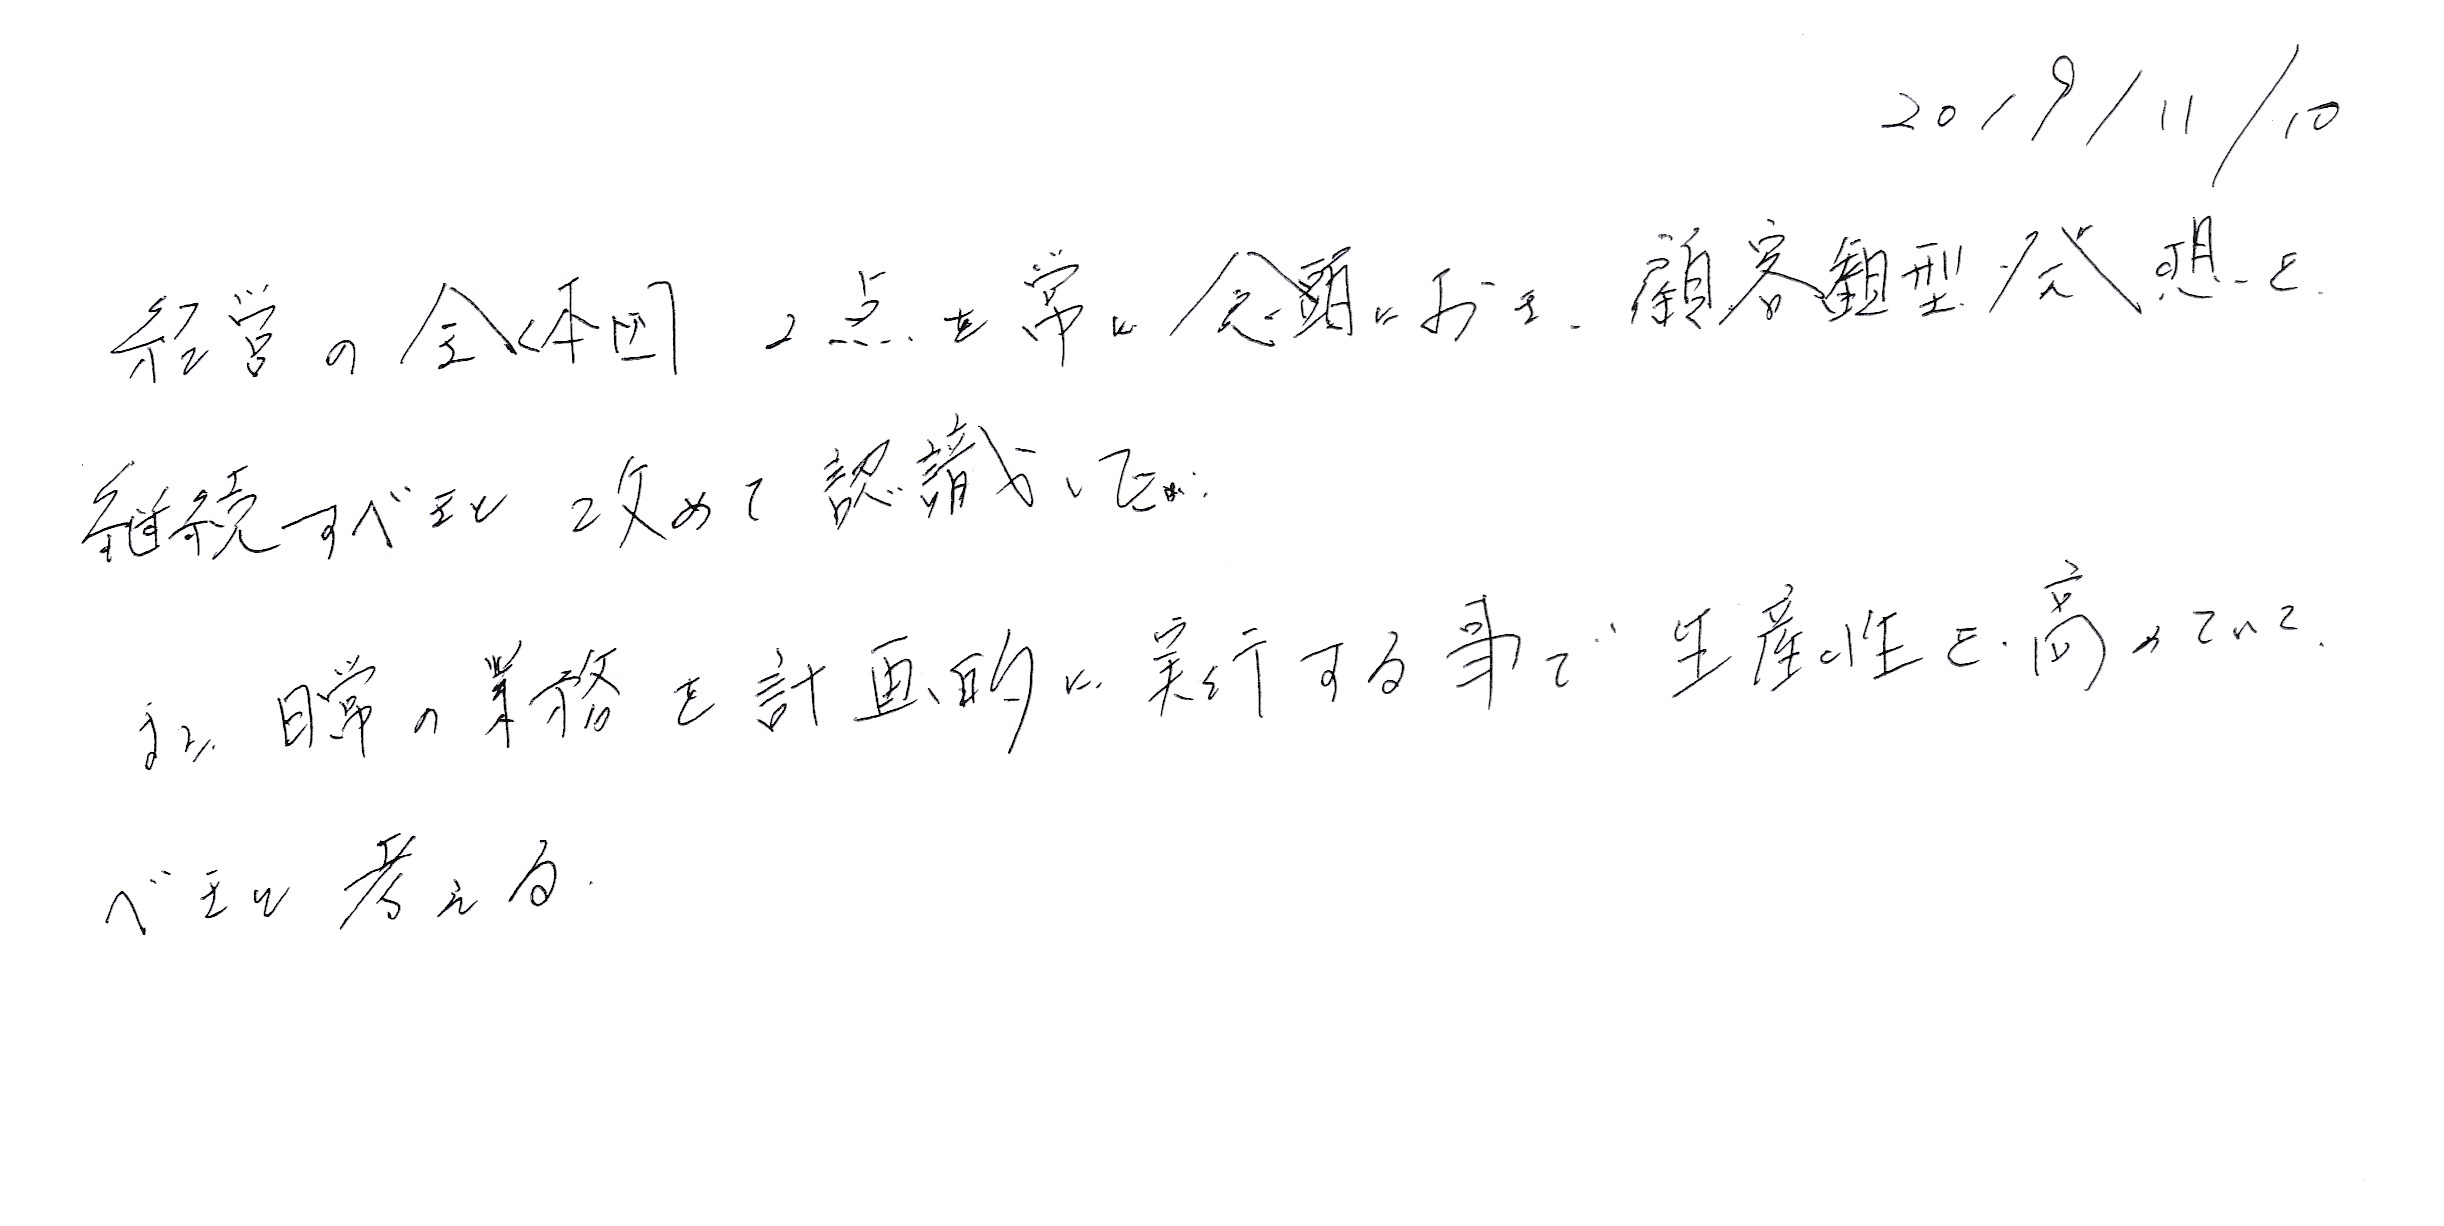 2019/11/10
経営の全体図 2点を常に念頭におき、顧客観型発想を
継続すべきと改めて認識して
また、日常の業務を計画的に実行する事で生産性を高めていく
べきと考える.